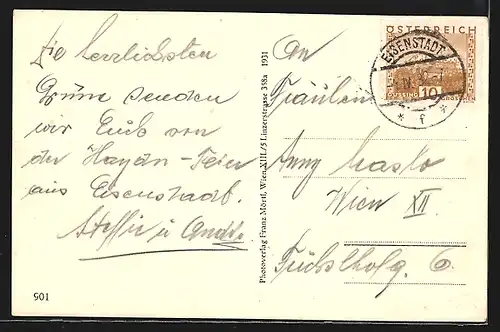 Die herzlichsten
Grüße senden
wir Euch von
der Haydn-Feier
aus Eisenstadt.
Steffie u.
901
Photoverlag Franz Mörtl, Wien, XIII./5 Linzerstrasse 358a 1931
An
Fräulein
Anny Haslo
Wien XII
6.
ÖSTERREICH
EISENSTADT
* f *
GÜSSING 10 GROSCHEN